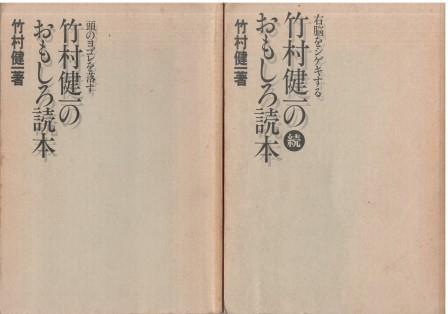 頭のヨゴレを落す
竹村健一の
おもしろ読本
竹村健一著
右脳をシゲキする
竹村健一の
続
おもしろ読本
竹村健一著